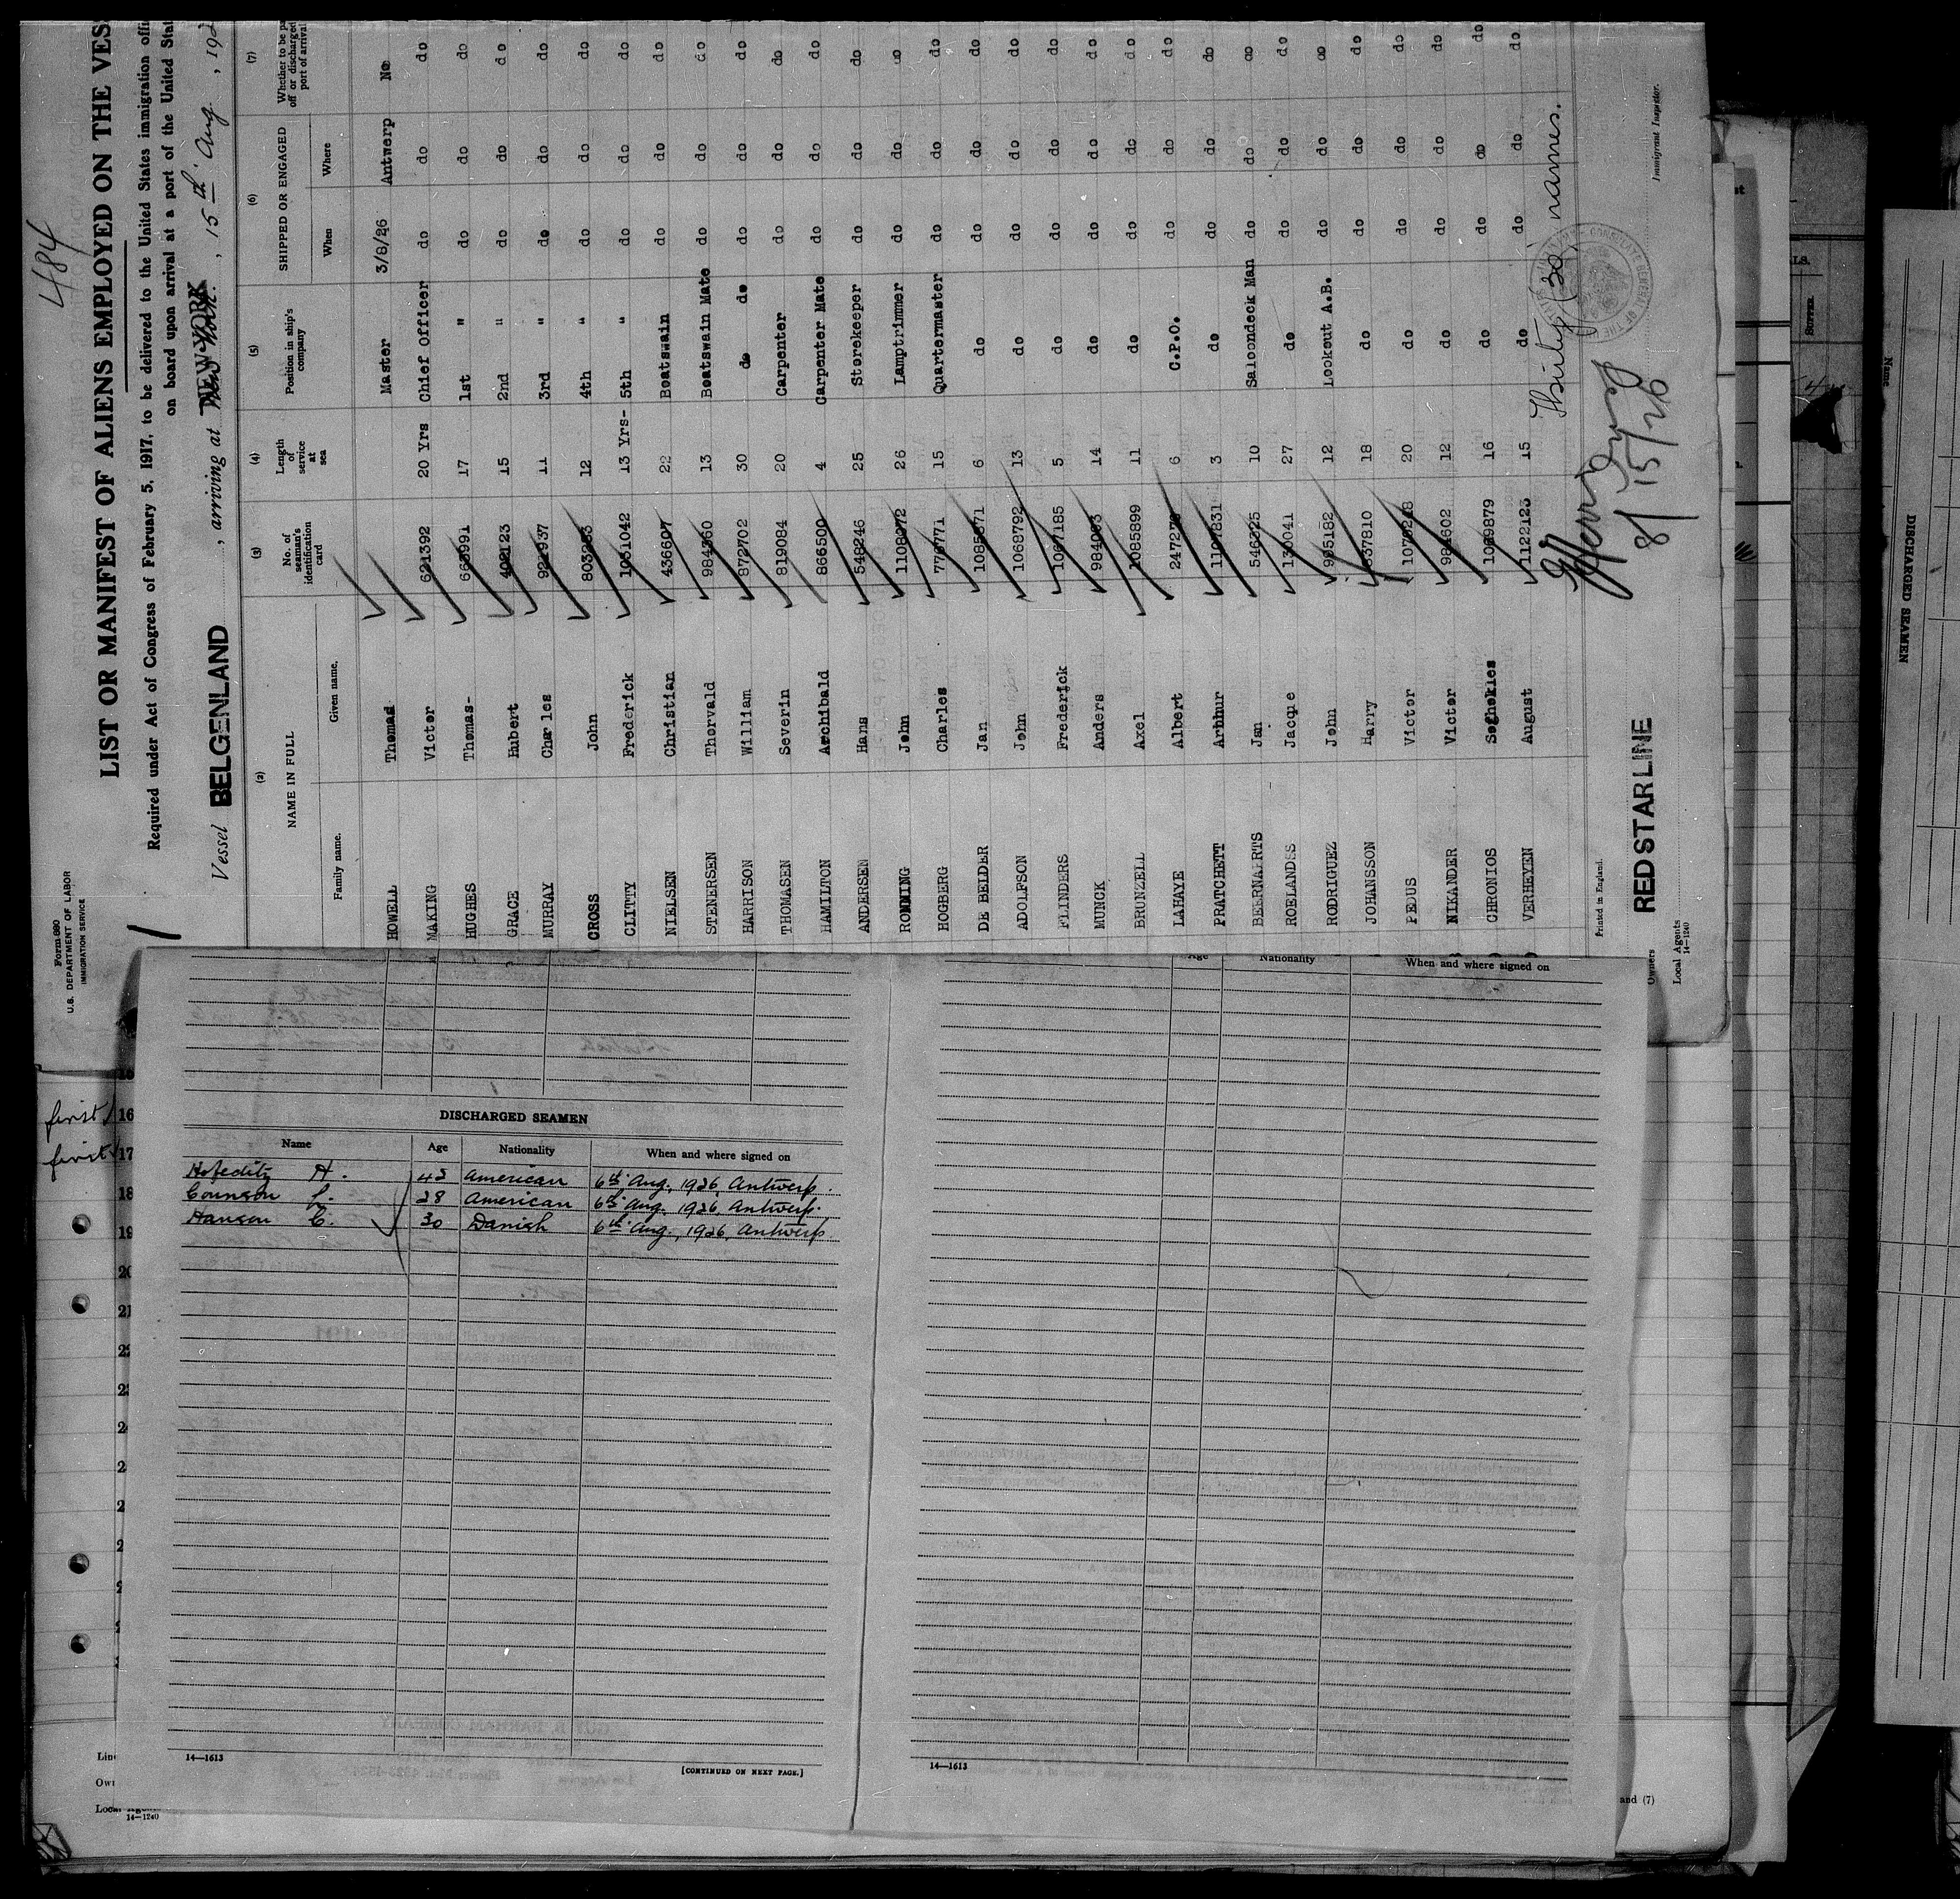 484
Form 680
U.S. DEPARTMENT OF LABOR
IMMIGRATION SERVICE
LIST OR MANIFEST OF ALIENS EMPLOYED ON THE VES
Required under Act of Congress of February 5, 1917, to be delivered to the United States immigration offi
on board upon arrival at a port of the United Stat
Vessel BELGENLAND, arriving at NEW YORK, 15th Aug., 192
(2) (3) (4) (5) (6) (7)
NAME IN FULL No. of seaman's identification card Length of service at sea Position in ship's company SHIPPED OR ENGAGED Whether to be pa off or discharged port of arrival
Family name. Given name. When Where
HOWELL Thomas Master 3/8/26 Antwerp No
MAKING Victor 621392 20 Yrs Chief Officer do do do
HUGHES Thomas- 17 1st " do do do
GRACE Hubert 15 2nd " do do do
MURRAY Charles 11 3rd " do do do
CROSS John 12 4th " do do do
CLITTY Frederick 1051042 13 Yrs- 5th " do do do
NIELSEN Christian 436607 22 Boatswain do do do
STENERSEN Thorvald 984560 13 Boatswain Mate do do do
HARRISON William 872702 30 do do do do do
THOMASEN Severin 819084 20 Carpenter do do do
HAMILTON Archibald 866500 4 Carpenter Mate do do do
ANDERSEN Hans 548246 25 Storekeeper do do do
RONNING John 26 Lamptrimmer do do do
HOGBERG Charles 15 Quartermaster do do do
DE BELDER Jan 6 do do do do
ADOLFSON John 1068792 13 do do do do
FLINDERS Frederick 1067185 5 do do do do
MUNCK Anders 14 do do do do
BRUNZELL Axel 1085899 11 do do do do
LAHAYE Albert 6 C.P.O. do do do
PRATCHETT Arthur 3 do do do do
BEERNAERTS Jan 10 Saloondeck Man do do do
ROELANDSS Jacque 27 do do do do
RODRIGUEZ John 12 Lookout A.B. do do do
JOHANSSON Harry 18 do do do do
PEDUS Victor 20 do do do do
NIKANDER Victor 12 do do do do
CHRONIOS 16 do do do do
VERHEYEN August 1122123 15 do do do do
Thirty (30) names.
8/15/26
Immigrant Inspector.
Printed in England.
RED STAR LINE
Owners
Local Agents
14—1240
first 16
first 17
18
19
20
21
DISCHARGED SEAMEN
Name Age Nationality When and where signed on
A. 42 American 6th Aug, 1926, Antwerp.
28 American 6th Aug. 1926, Antwerp.
Hansen C. 30 Danish 6th Aug., 1926, Antwerp
14—1613
[CONTINUED ON NEXT PAGE.]
Age Nationality When and where signed on
14—1613
Line
Own
Local Agents
14—1240
and (7)
Name
DISCHARGED SEAMEN